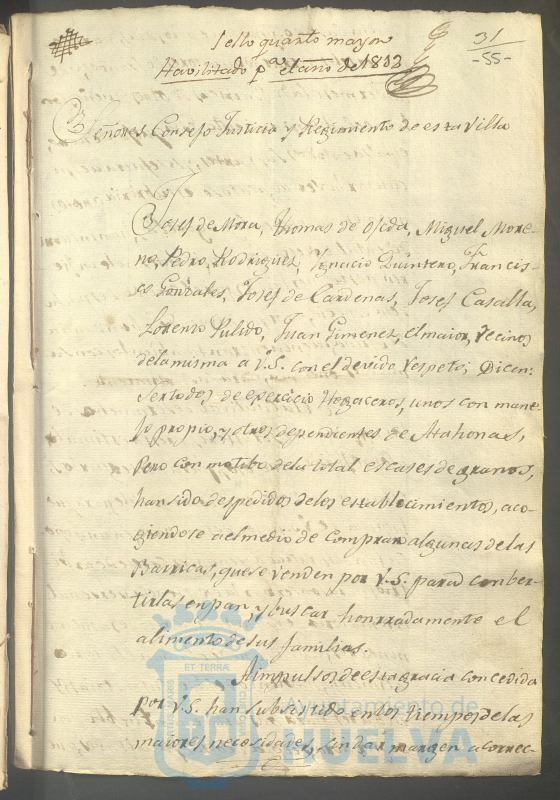 Sello quarto mayor
31
Havilitado pa. el año de 1812
-55-
Señores Consejo Justicia y Regimiento de esta Villa
Josef de Mora, Thomas de Ojeda, Miguel More-
no, Pedro Rodrigues, Ygnacio Quintero, Francis-
co Gonzales, Josef de Cardenas, Josef Casalla,
Lorenzo Pulido, Juan Gimenes, el maior, Vecinos
de la misma a V.S. con el devido respeto; Dicen:
Ser todos de exercicio Hogaceros, unos con mane-
jo propio, y otros dependientes de Atahonas,
Pero con motibo de la total escases de granos,
han sido despedidos de los establecimientos, aco-
giendose a el medio de Comprar algunas de las
Barricas, que se venden por V.S. para conber-
tirlas en pan, y buscar honrradamente el
alimento de sus familias.
A impulsos de esta gracia concedida
por V.S. han subsistido en los tiempos de las
maiores necesidades, sin dar margen a correc-
ET TERRÆ
Ayuntamiento de
HUELVA